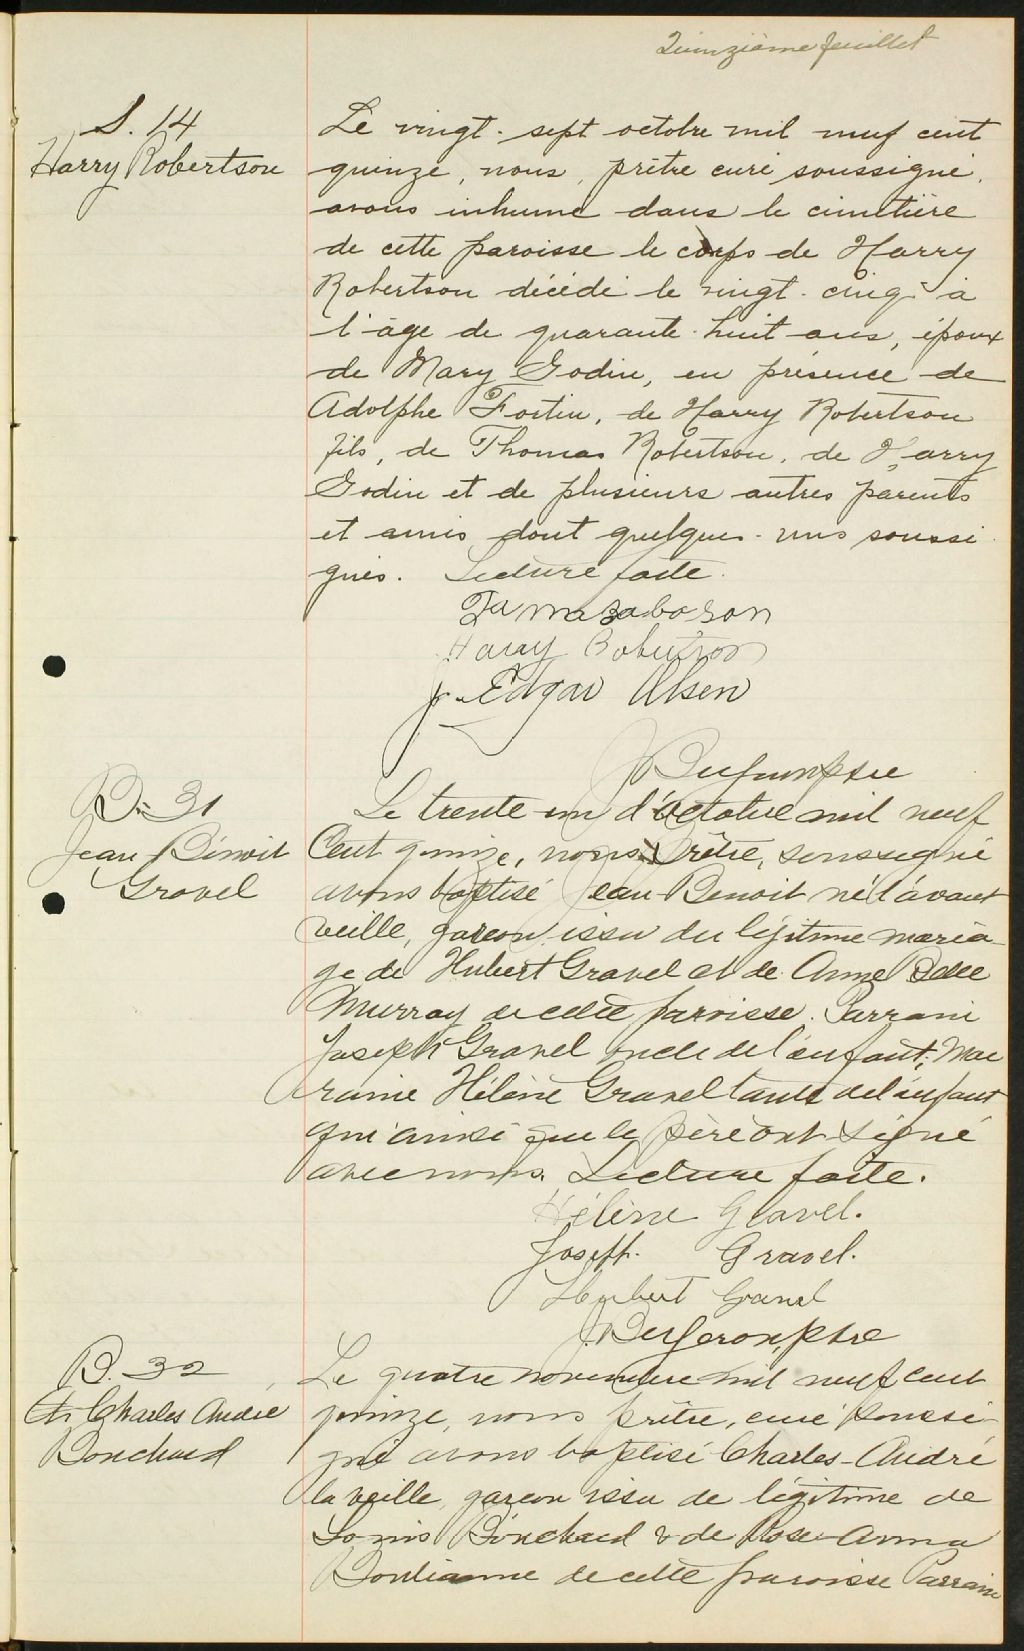 Quinzième feuillet
S. 14
Harry Robertson
Le vingt-sept octobre mil neuf cent
quinze, nous, prêtre curé soussigné,
avons inhumé dans le cimetière
de cette paroisse le corps de Harry
Robertson décédé le vingt-cinq à
l'âge de quarante-huit ans, époux
de Mary Godin, en présence de
Adolphe Fortin, de Harry Robertson
fils, de Thomas Robertson, de Harry
Godin et de plusieurs autres parents
et amis dont quelques-uns soussi
gnés. Lecture faite.
Harry Robertson
J. Edgar Olsen
ptre
B. 31
Jean Benoit
Gravel
Le trente-un d'octobre mil neuf
Cent quinze, nous Prêtre, soussigné
avons baptisé Jean-Benoit né l'avant
veille, garcon issu du légitime maria-
ge de Hubert Gravel et de Anne Belle
Murray de cette paroisse. Parrain
Joseph Gravel oncle de l'enfant; Mar
raine Hélène Gravel tante de l'enfant
qui ainsi que le père ont signé
avec nous. Lecture faite.
Hélène Gravel.
Joseph. Gravel.
Hubert Gravel
J. Bergeron, ptre
B. 32
Ch Charles André
Bouchard
Le quatre novembre mil neuf cent
quinze, nous prêtre, curé soussi-
gné avons baptisé Charles-André
la veille, garcon issu de légitime de
Louis Bouchard & de Rose-Anna
Boulianne de cette paroisse Parrain